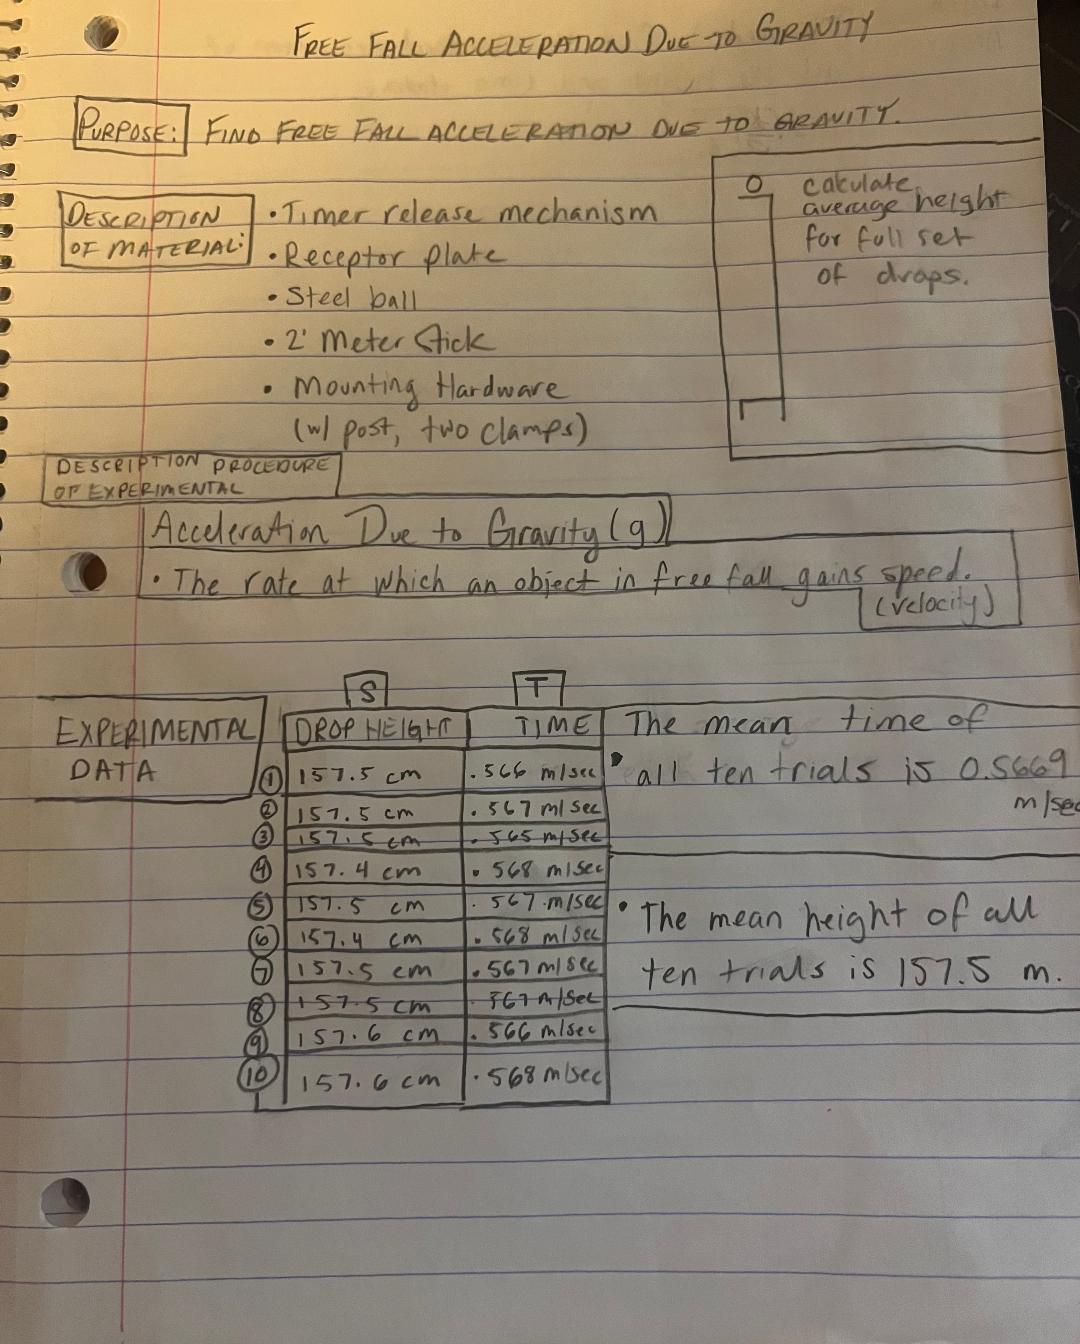 FREE FALL ACCELERATION DUE TO GRAVITY
PURPOSE: FIND FREE FALL ACCELERATION DUE TO GRAVITY.
DESCRIPTION
OF MATERIAL:
• Timer release mechanism
• Receptor plate
• Steel ball
• 2' Meter Stick
• Mounting Hardware
(w/ post, two clamps)
calculate
average height
for full set
of drops.
DESCRIPTION PROCEDURE
OF EXPERIMENTAL
Acceleration Due to Gravity (g)
• The rate at which an object in free fall gains speed.
(velocity)
EXPERIMENTAL
DATA
S T
DROP HEIGHT TIME
1 157.5 cm .566 m/sec
2 157.5 cm .567 m/sec
3 157.5 cm .565 m/sec
4 157.4 cm .568 m/sec
5 157.5 cm .567 m/sec
6 157.4 cm .568 m/sec
7 157.5 cm .567 m/sec
8 157.5 cm .567 m/sec
9 157.6 cm .566 m/sec
10 157.6 cm .568 m/sec
The mean time of
• all ten trials is 0.5669
m/sec
• The mean height of all
ten trials is 157.5 m.